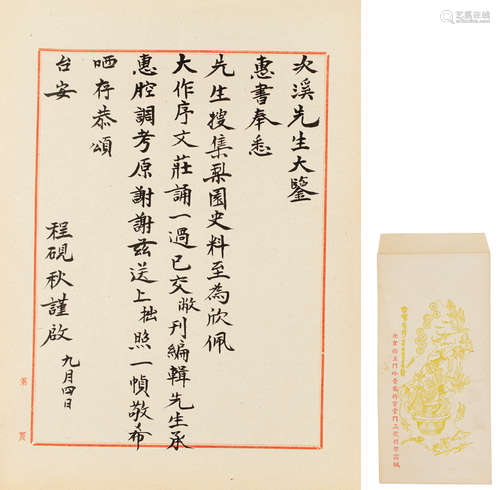 次溪先生大鑒
惠書奉悉
先生搜集梨園史料至為欣佩
大作序文莊誦一過已交敝刊編輯先生承
惠腔調考原謝謝茲送上拙照一幀敬希
哂存恭頌
台安
程硯秋謹啟 九月四日
第 頁
艺典在线
yidianchina.com